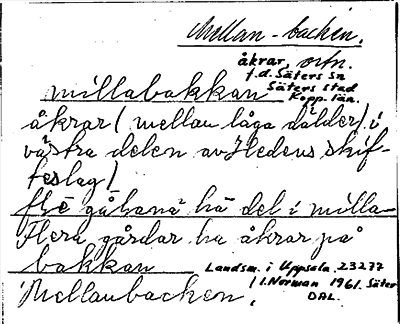 Mellan-backen.
åkrar, ortn.
f.d. Säters Sn
Säters stad
Kopp. län.
millabakkan
åkrar (mellan låga dälder) i
västra delen av Hedens skif-
teslag)
fle gåhana ha del i milla-
Flera gårdar ha åkrar på
bakkan
Mellanbacken.
Landsm. i Uppsala. 23277
I. Norman 1961. Säter
DAL.